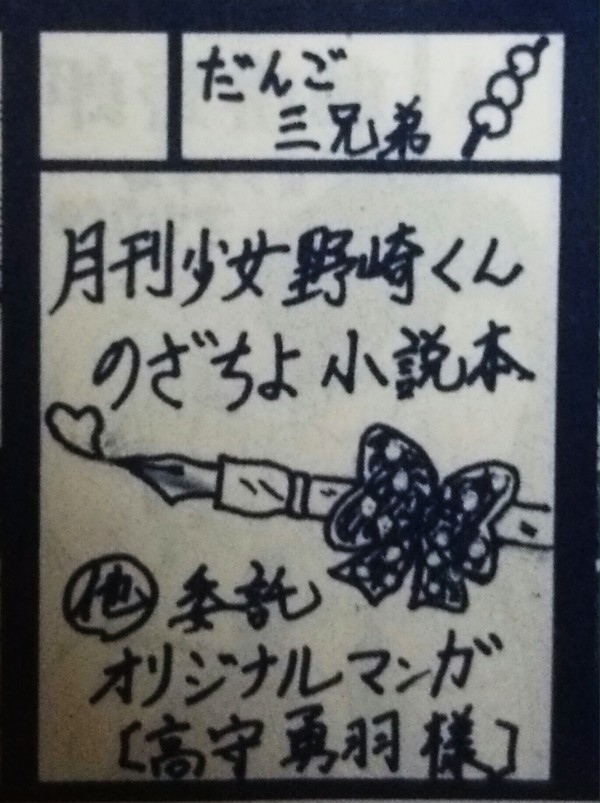 だんご
三兄弟
月刊少女野崎くん
のざちよ小説本
他 委託
オリジナルマンガ
[高守勇羽様]